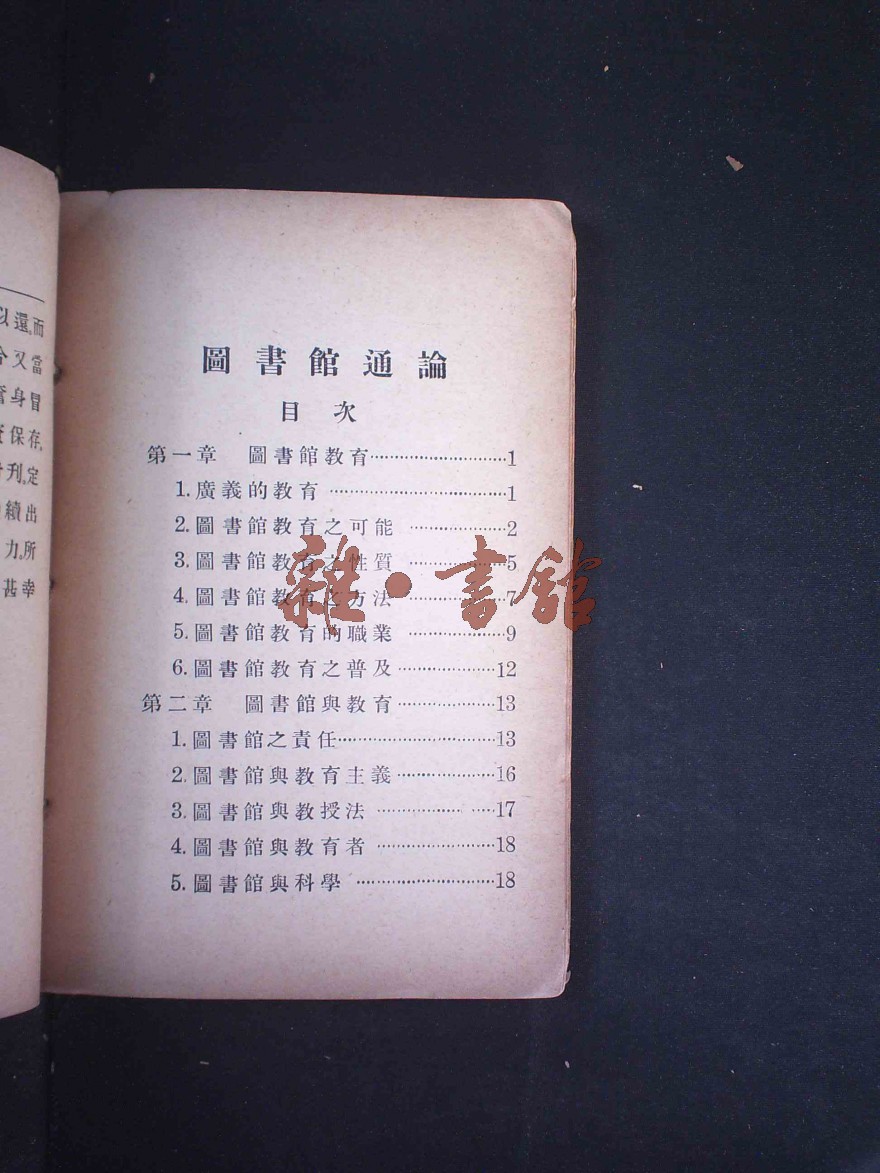 圖書館通論
目次
第一章 圖書館教育…………………………1
1.廣義的教育…………………………1
2.圖書館教育之可能………………2
3.圖書館教育之性質………………5
4.圖書館教育之方法………………7
5.圖書館教育的職業………………9
6.圖書館教育之普及………………12
第二章 圖書館與教育………………13
1.圖書館之責任………………………13
2.圖書館與教育主義………………16
3.圖書館與教授法…………………17
4.圖書館與教育者…………………18
5.圖書館與科學……………………18
雜·書館
以還。而
又當
身冒
保存。
刊。定
續出
力。所
甚幸